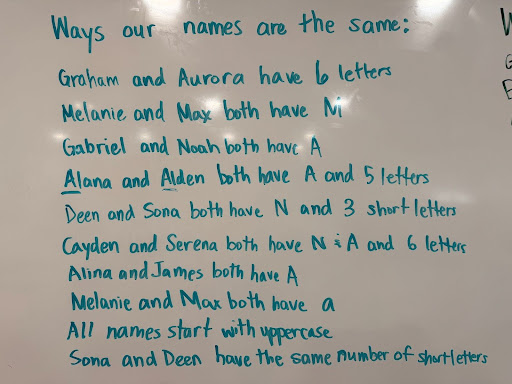 Ways our names are the same:
Graham and Aurora have 6 letters
Melanie and Max both have
Gabriel and Noah both have A
Alana and Alden both have A and 5 letters
Deen and Sona both have N and 3 short letters
Cayden and Serena both have N & A and 6 letters
Alina and James both have A
Melanie and Max both have a
All names start with uppercase
Sona and Deen have the same number of short letters